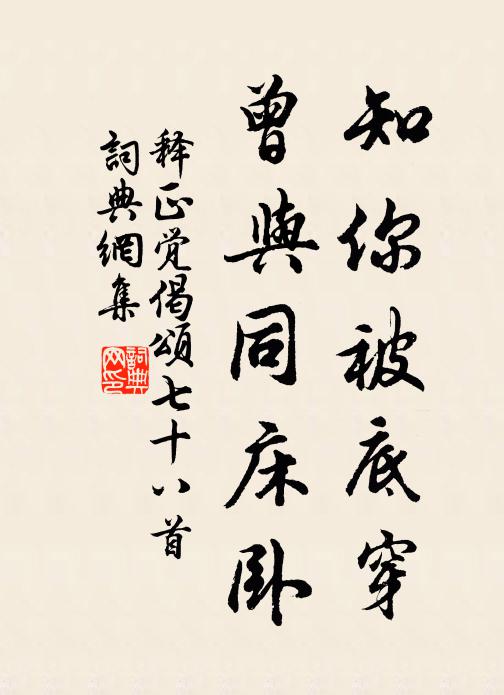 知你被底穿
曾與同床卧
释正覚偈頌七十八首
詞典網集
詞典网印